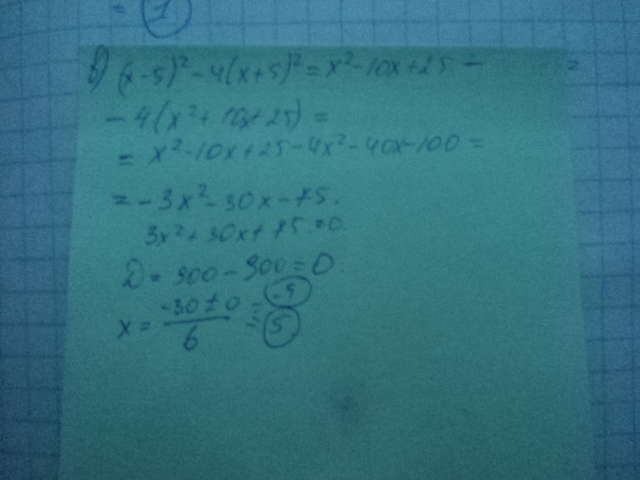 = 1
в) (x-5)² - 4(x+5)² = x² - 10x + 25 - =
- 4(x² + 10x + 25) =
= x² - 10x + 25 - 4x² - 40x - 100 =
= - 3x² - 30x - 75.
3x² + 30x + 75 = 0
D = 900 - 900 = 0
x = (-30 ± 0)/6 = -5
= 5